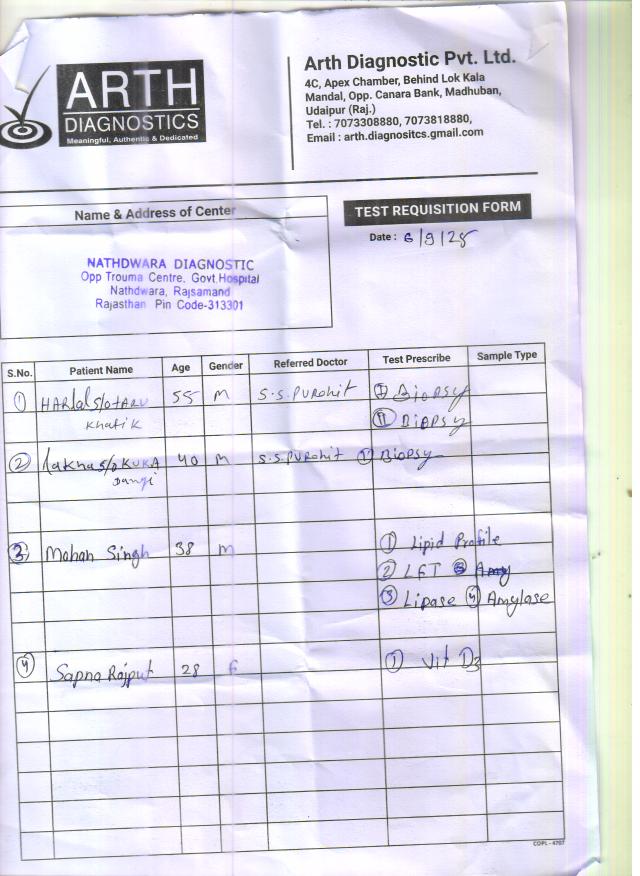 ARTH
DIAGNOSTICS
Meaningful, Authentic & Dedicated
Arth Diagnostic Pvt. Ltd.
4C, Apex Chamber, Behind Lok Kala
Mandal, Opp. Canara Bank, Madhuban,
Udaipur (Raj.)
Tel. : 7073308880, 7073818880,
Email : arth.diagnositcs.gmail.com
Name & Address of Center
TEST REQUISITION FORM
Date : 6/9/25
NATHDWARA DIAGNOSTIC
Opp Trouma Centre, Govt.Hospital
Nathdwara, Rajsamand
Rajasthan Pin Code-313301
S.No. Patient Name Age Gender Referred Doctor Test Prescribe Sample Type
① HARlal s/o TARU 55 M S.S.PUROHIT Ⓘ Biopsy
Khatik Ⓘ Biopsy
② lakha s/o KUKA 40 M S.S.PUROHIT ① Biopsy
Dangi
③ Mohan Singh 38 m ① Lipid Profile
② LFT ③ Amy
③ Lipase ④ Amylase
④ Sapna Rajput 28 F ① Vit D3
COPL - 4707